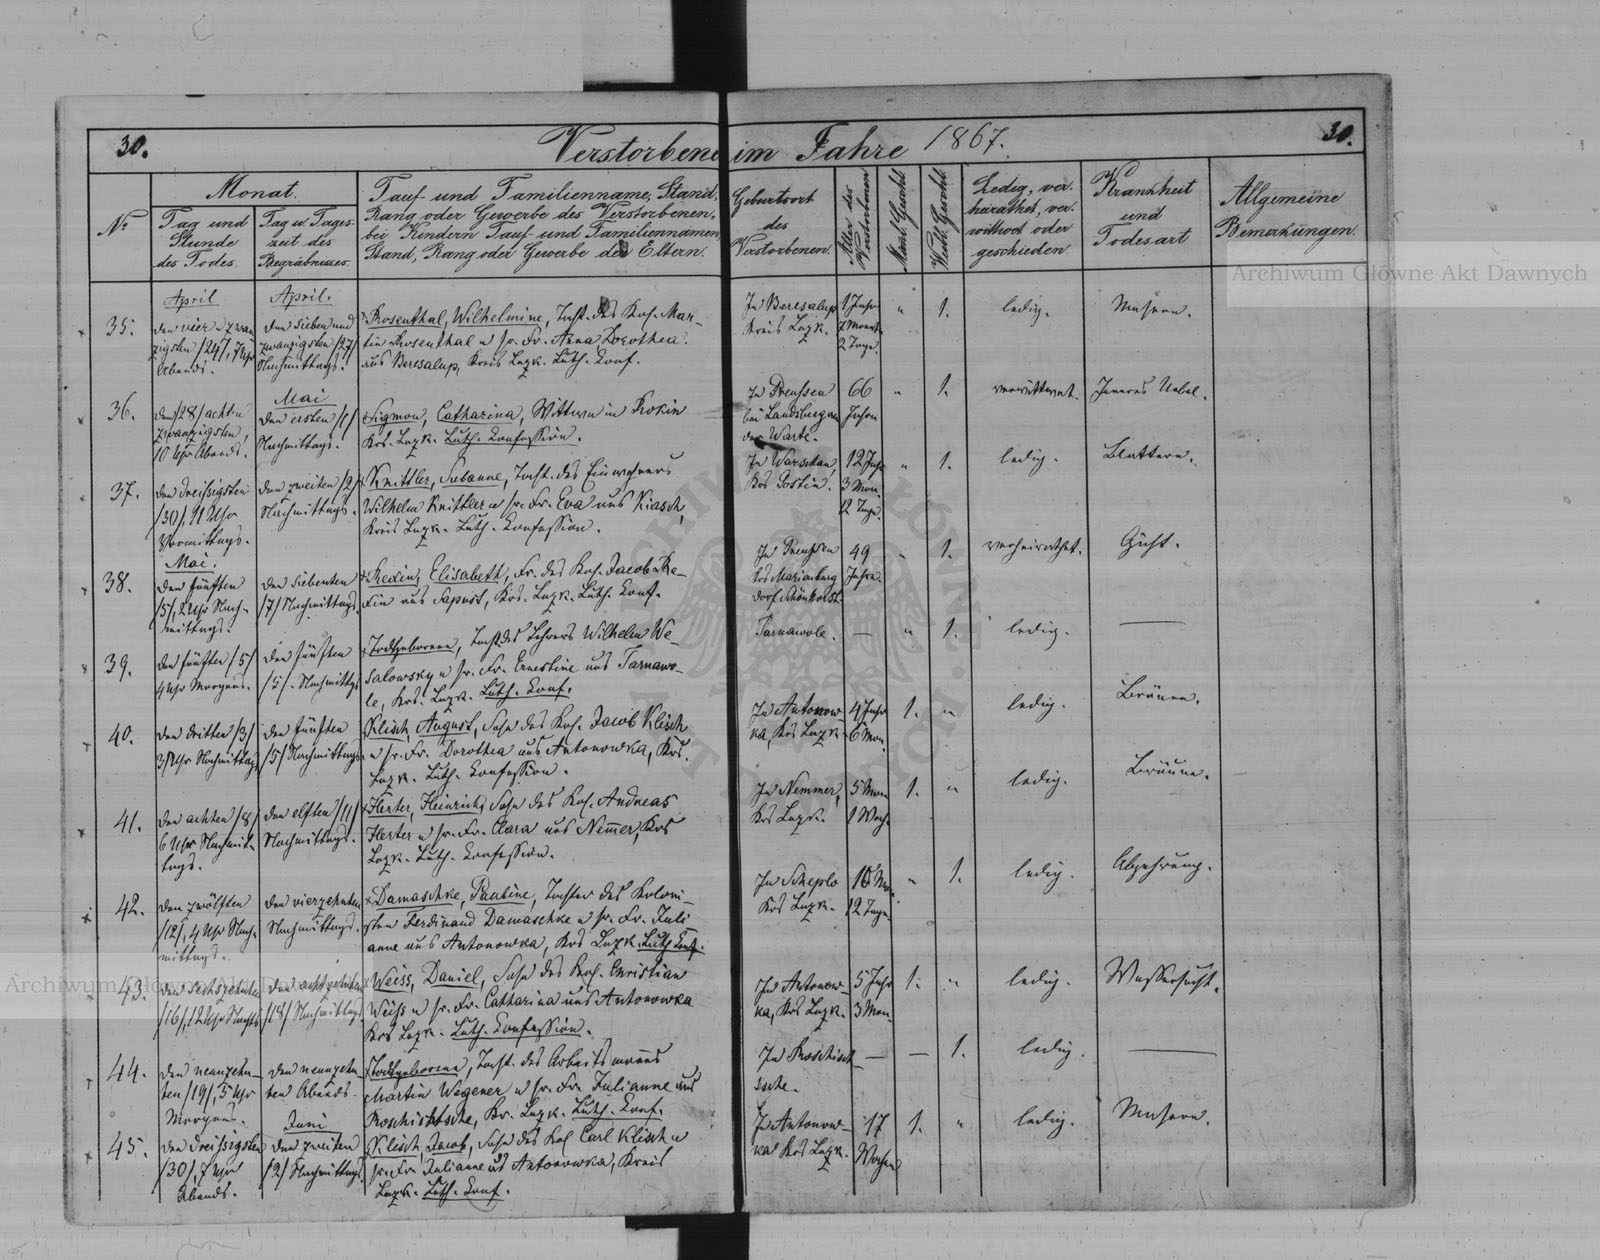 30.
Verstorbene im Jahre 1867.
30.
No
Monat.
Tag und
Stunde
des Todes.
Tag u. Tages-
zeit des
Begräbnisses.
Tauf- und Familienname, Stand,
Rang oder Gewerbe des Verstorbenen,
bei Kindern Tauf- und Familiennamen,
Stand, Rang oder Gewerbe der Eltern.
Geburtsort
des
Verstorbenen.
Alter des
Verstorbenen
Mänl. Geschl.
Weibl. Geschl.
Ledig, ver-
heirathet, ver-
wittwet oder
geschieden
Krankheit
und
Todesart
Allgemeine
Bemerkungen.
35.
April
den vier u. zwan
zigsten /24/, 7 Uhr
Abends.
April.
den sieben und
zwanzigsten /27/
Nachmittags.
Rosenthal, Wilhelmine, Tocht. des Kol. Mar-
tin Rosenthal u sr. Fr. Anna Dorothea.
aus Beresalup, Kreis Luzk. Luth. Conf.
In Beresalup
Kreis Luzk.
1 Jahr
7 Monat
2 Tage.
"
1.
ledig.
Masern.
36.
den /28/ acht u
zwanzigsten,
10 Uhr Abends.
Mai
den ersten /1/
Nachmittags.
Sigmon, Catharina, Wittwe in Rokin
Krs. Luzk. Luth. Confession.
In Preußen
bei Landsberg an
der Warte.
66
Jahre
"
1.
verwittwet.
Inneres Uebel.
37.
den dreißigsten
/30/, 11 Uhr
Vormittags.
den zweiten /2/
Nachmittags.
Knittler, Susanne, Tocht. des Einwohners
Wilhelm Knittler u sr. Fr. Eva aus Kiasch,
Kreis Luzk. Luth. Confession.
In Warschau,
Krs Gostin.
12 Jahr
3 Mon.
12 Tage.
"
1.
ledig.
Blattern.
38.
Mai.
den fünften
/5/, 2 Uhr Nach-
mittags.
den siebenten
/7/ Nachmittags.
Redin, Elisabeth, Fr. des Kol. Jacob Re-
din aus Sapust, Krs. Luzk. Luth. Conf.
In Preußen
Krs Marienburg
Dorf Schönhorst.
49
Jahre.
"
1.
verheirathet.
Gicht.
39.
den fünften /5/
4 Uhr Morgens.
den fünften
/5/. Nachmittgs
Todtgeborene, Tocht. des Lehrers Wilhelm We-
salowsky u sr. Fr. Ernestine aus Tarnawo-
le, Krs. Luzk. Luth. Conf.
Tarnawole.
—
"
1.
ledig.
—
40.
den dritten /3/
3 Uhr Nachmittag
den fünften
/5/ Nachmittags.
Klisch, August, Sohn des Kol. Jacob Klisch
u sr. Fr. Dorothea aus Antonowka, Krs.
Luzk. Luth. Confession.
In Antonow-
ka, Krs Luzk.
4 Jahr
6 Mon.
1.
"
ledig.
Bräune.
41.
den achten /8/
6 Uhr Nachmit-
tags.
den elften /11/
Nachmittags.
Herter, Heinrich, Sohn des Kol. Andreas
Herter u sr. Fr. Clara aus Nemer, Krs
Luzk. Luth. Confession.
In Nemmer,
Krs Luzk.
5 Mon
1 Woch.
1.
"
ledig.
Bräune.
42.
den zwölften
/12/, 4 Uhr Nach-
mittags.
den vierzehnten
Nachmittags.
Damaschke, Pauline, Tochter des Koloni-
sten Ferdinand Damaschke u sr. Fr. Juli
anne aus Antonowka, Krs Luzk. Luth Conf.
In Scheplo
Krs Luzk.
10 Mon.
12 Tage
"
1.
ledig.
Abzehrung.
43.
den sechszehnten
/16/, 12 Uhr Nachts
den achtzehnten
/18/ Nachmittags.
Weiss, Daniel, Sohn des Kol. Christian
Weiß u sr. Fr. Catharina aus Antonowka
Krs Luzk. Luth. Confession.
In Antonow-
ka, Krs Luzk.
5 Jahr
3 Mon.
1.
"
ledig.
Wassersucht.
44.
den neunzehn-
ten /19/, 5 Uhr
Morgens.
den neunzehn-
ten Abends.
Todtgeborene, Tocht. des Arbeitsmanns
Martin Wegener u sr. Fr. Julianne aus
Roschischtsche, Kr. Luzk. Luth. Conf.
In Roschischt
sche.
—
—
1.
ledig.
—
45.
den dreißigsten
/30/, 7 Uhr
Abends.
Juni
den zweiten
/2/ Nachmittags.
Klisch, Jacob, Sohn des Kol Carl Klisch u
sr. Fr. Julianne aus Antonowka, Kreis
Luzk. Luth. Conf.
In Antonow-
ka Krs Luzk.
17
Wochen
1.
"
ledig.
Masern.
Archiwum Główne Akt Dawnych
Archiwum Główne Akt Dawnych